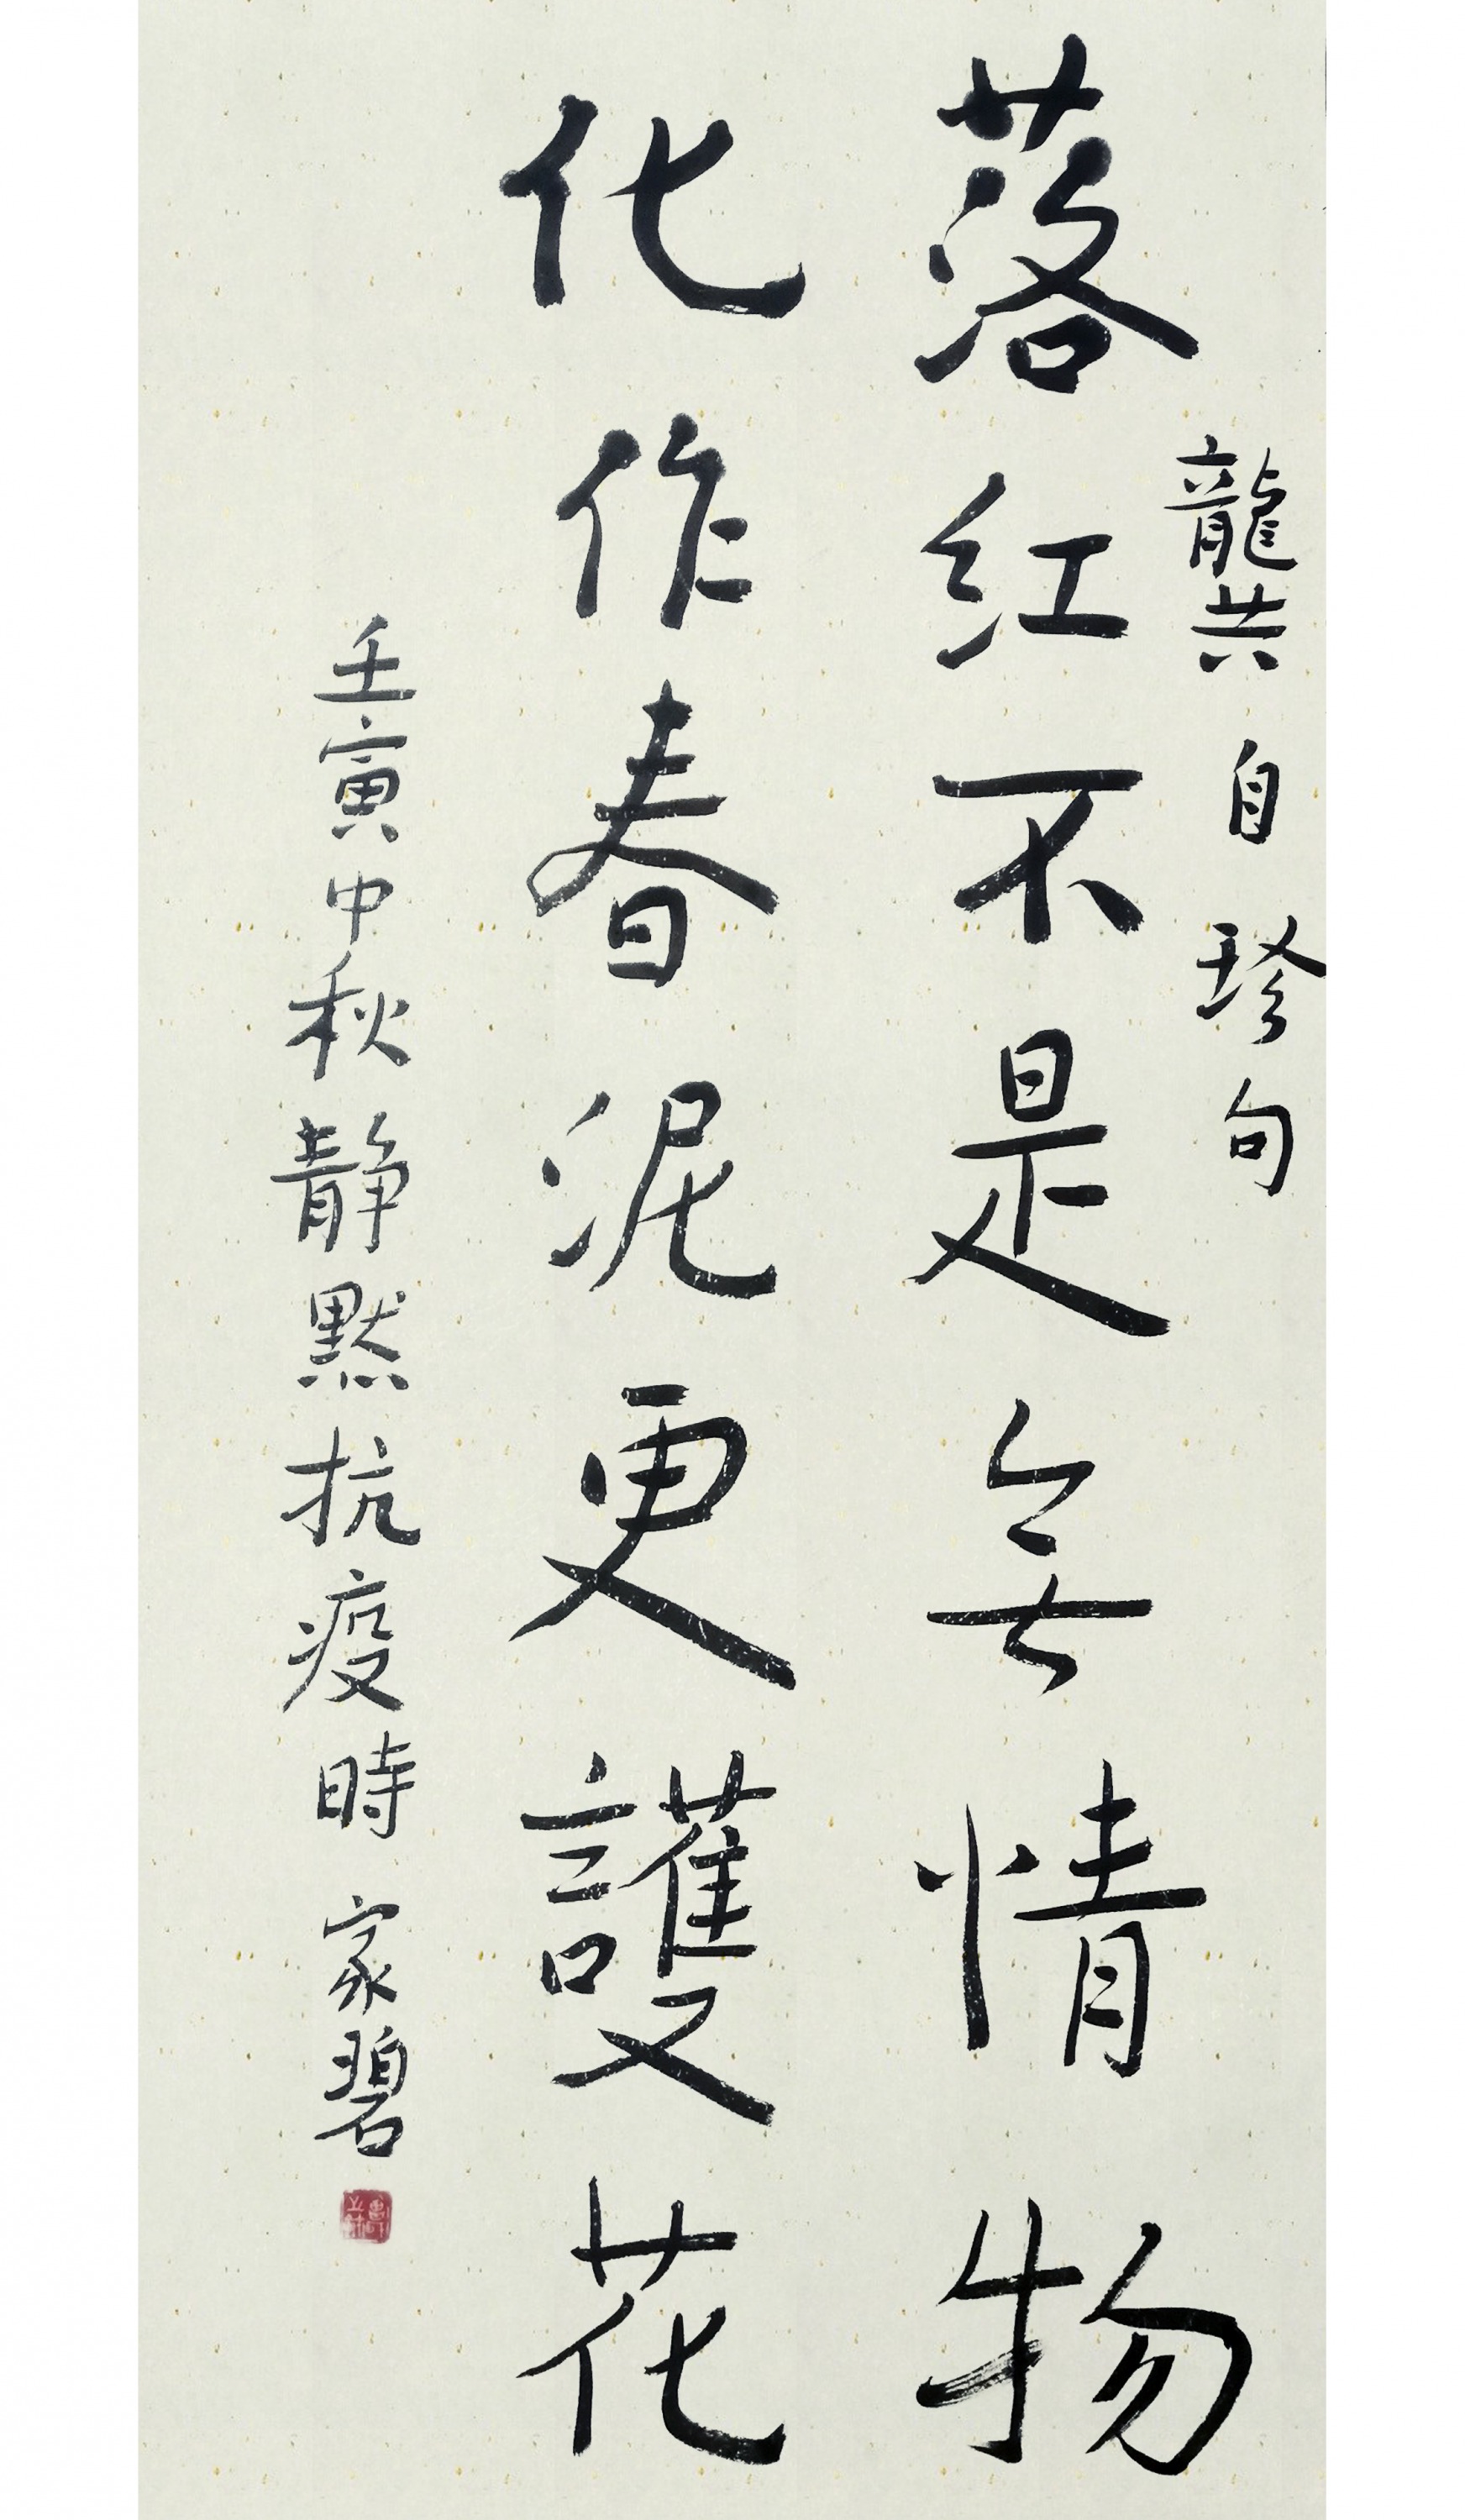 龔自珍句
落红不是無情物
化作春泥更護花
壬寅中秋静默抗疫時 家碧